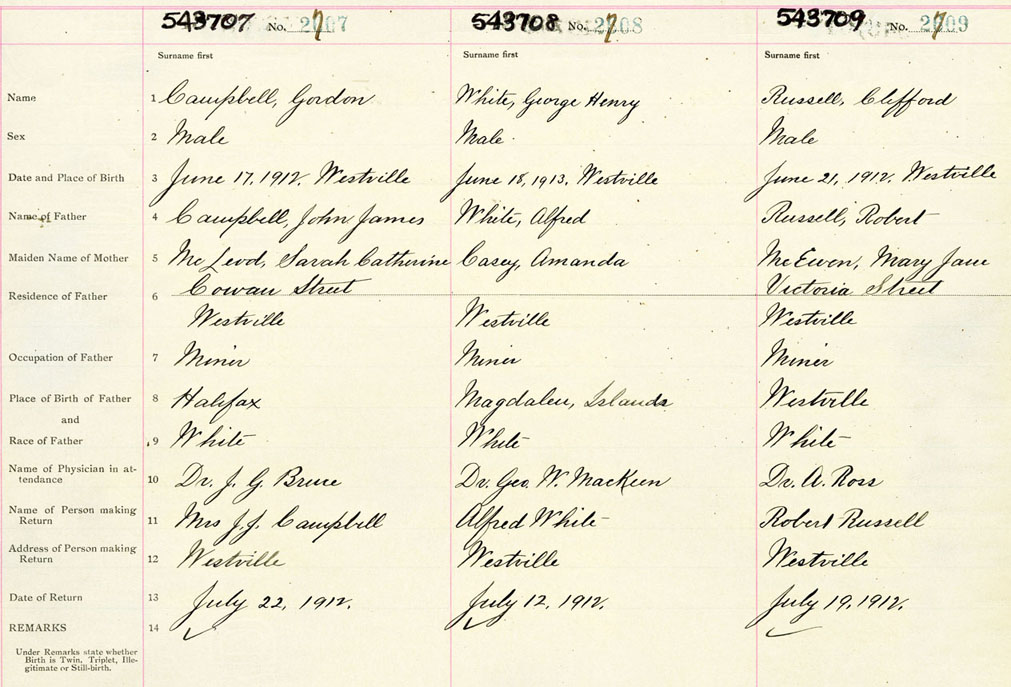 543707 No. 2707 543708 No. 2708 543709 No. 2709
Surname first Surname first Surname first
Name 1 Campbell, Gordon White, George Henry Russell, Clifford
Sex 2 Male Male Male
Date and Place of Birth 3 June 17, 1912. Westville June 18, 1913. Westville June 21, 1912. Westville
Name of Father 4 Campbell, John James White, Alfred Russell, Robert
Maiden Name of Mother 5 McLeod, Sarah Catherine Casey, Amanda McEwen, Mary Jane
Residence of Father 6 Cowan Street Victoria Street
Westville Westville Westville
Occupation of Father 7 Miner Miner Miner
Place of Birth of Father 8 Halifax Magdalen, Islands Westville
and
Race of Father 9 White White White
Name of Physician in at-
tendance 10 Dr. J. G. Bruce Dr. Geo. W. MacKeen Dr. A. Ross
Name of Person making
Return 11 Mrs J. J. Campbell Alfred White Robert Russell
Address of Person making
Return 12 Westville Westville Westville
Date of Return 13 July 22, 1912. July 12, 1912. July 19, 1912.
REMARKS 14
Under Remarks state whether
Birth is Twin, Triplet, Ille-
gitimate or Still-birth.